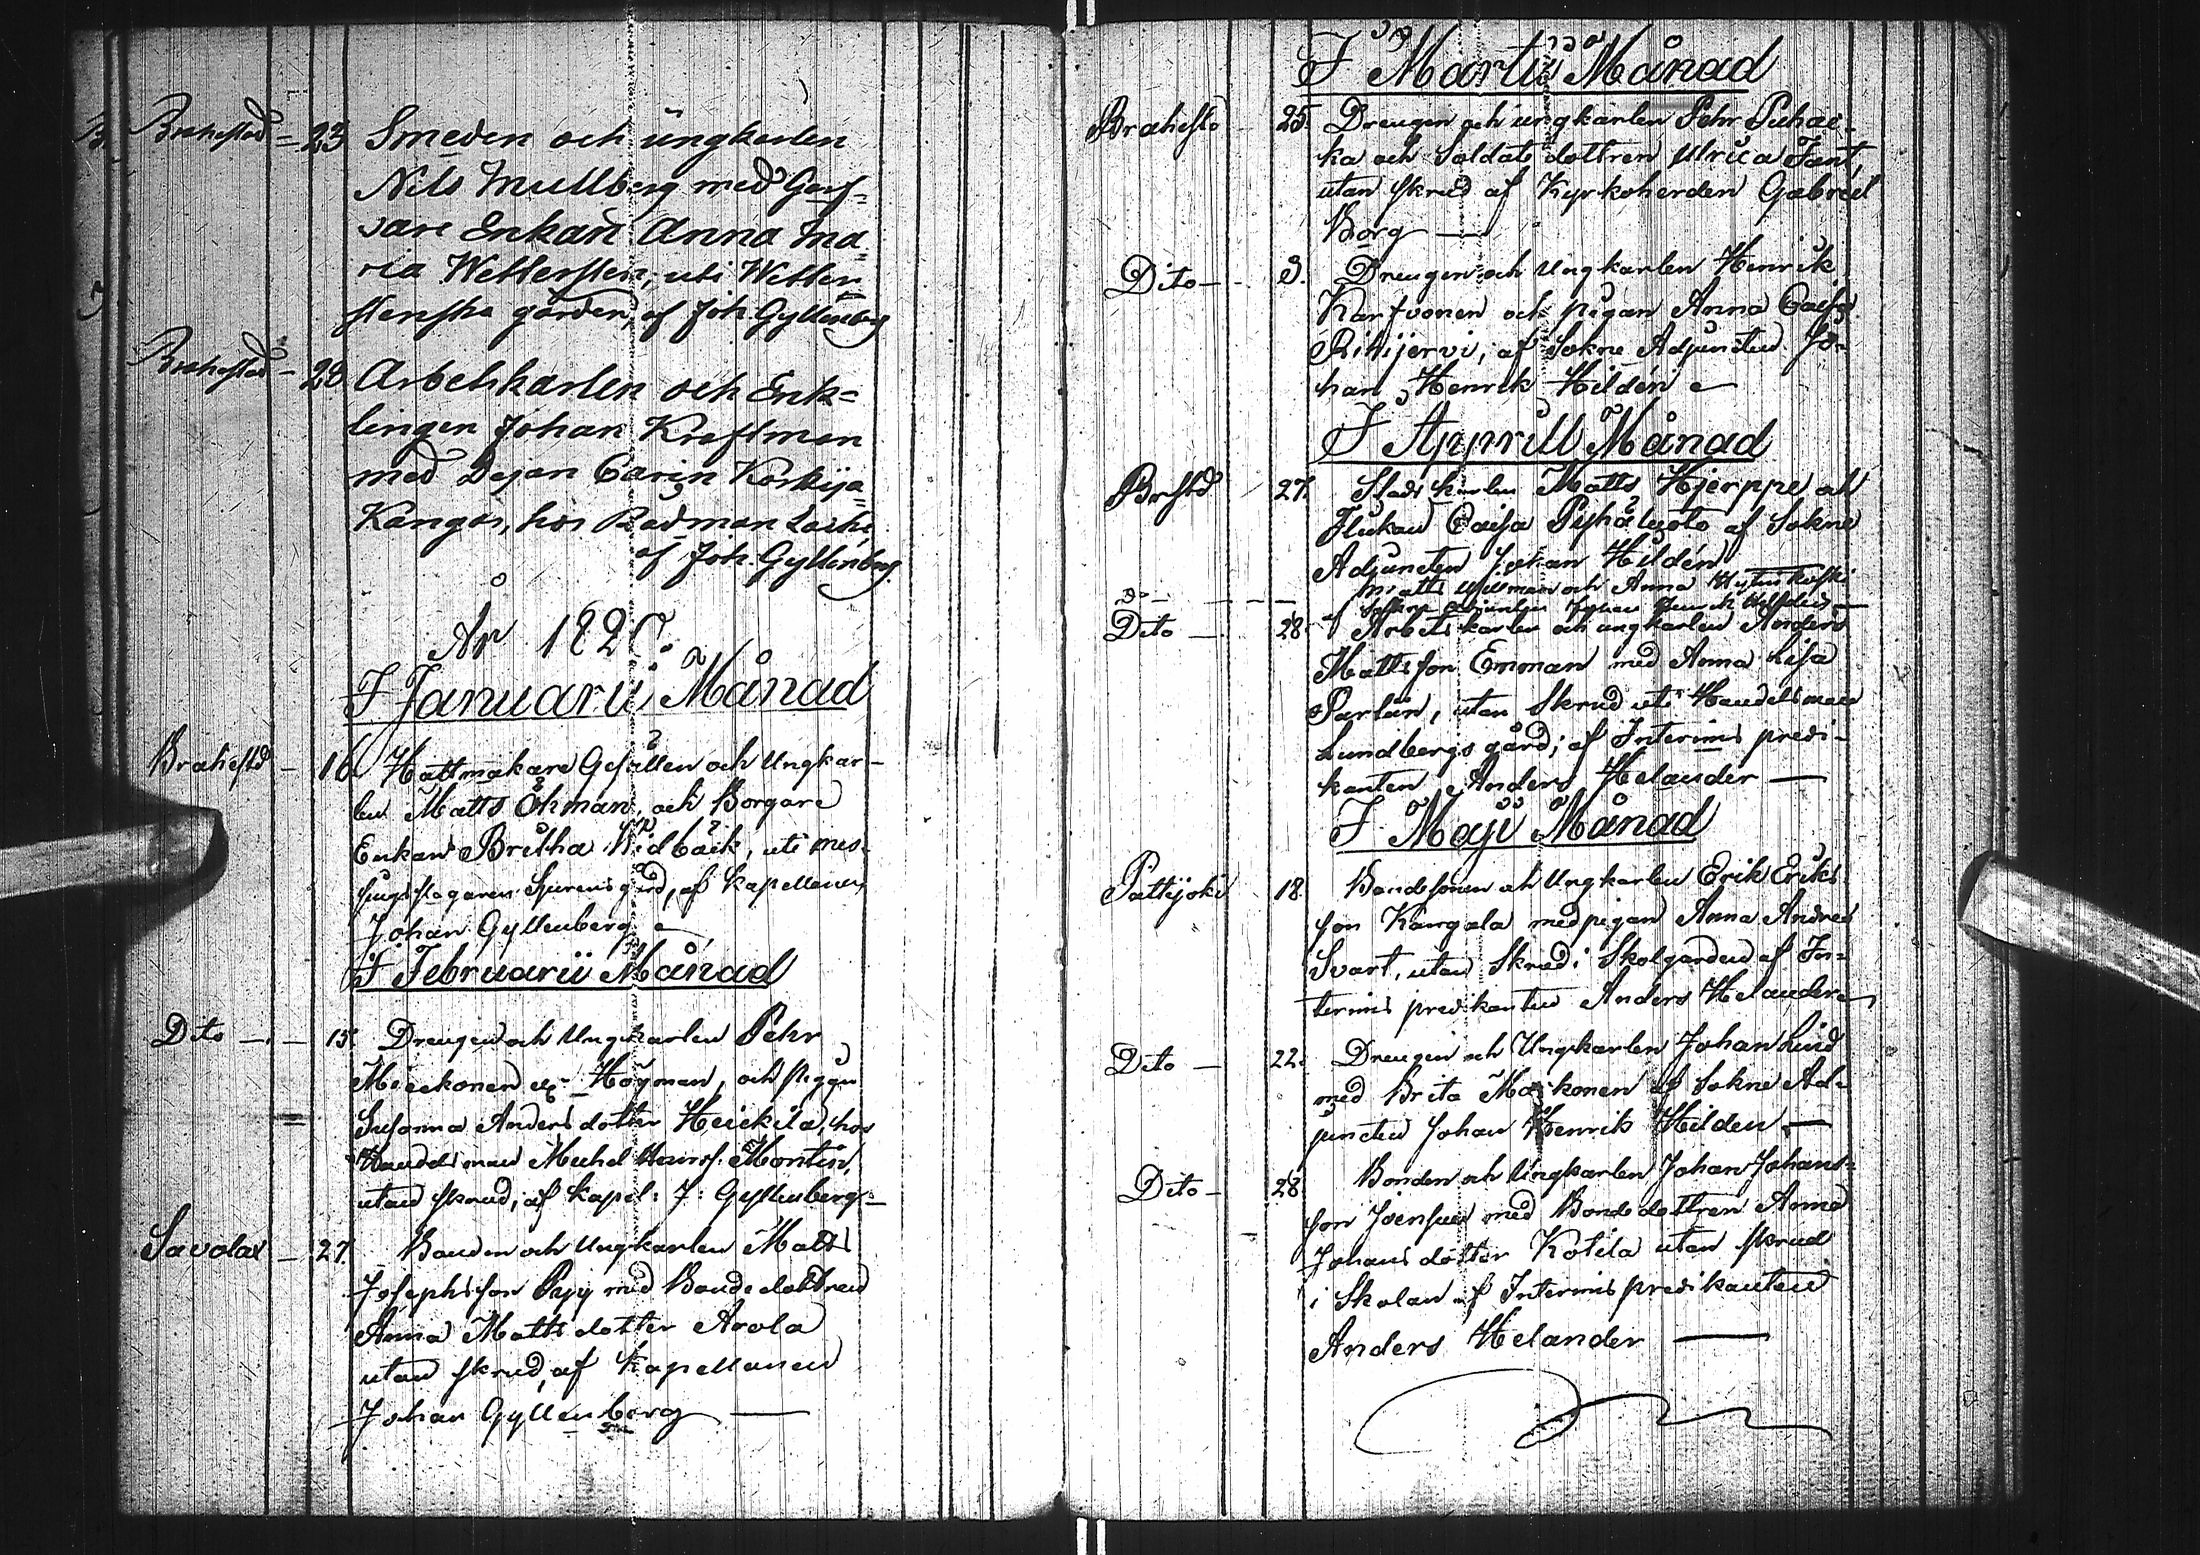 Brahestad - 23 Smeden och ungkarlen
Nils Mullberg med Garf-
vare Enkan Anna Ma-
ria Wettersten, uti Wetter-
stenska gården, af Joh. Gyllenberg
Brahestad - 28 Arbetskarlen och Enk-
lingen Johan Kraftman
med Dejan Carin Koskija-
Kangas, hos Rådman
af Joh. Gyllenberg.
År 1820.
I Januarii Månad
Brahestd - 16 Hattmakare Gesällen och Ungkar-
len Matts Öhman och Borgare
Enkan Britha Widbäck, uti mes-
singsslagaren gård, af Kapellanen
Johan Gyllenberg
I Februarii Månad
Dito - 15. Drengen och Ungkarlen Pehr
Högman, och Pigan
Susanna Anders dotter Heickilä, hos
Handelsman Michel Montin,
utan skrud, af Kapel: J: Gyllenberg -
Savolax - 27. Bonden och Ungkarlen Matts
Josephsson med Bondedottren
Anna Matts dotter Arola
utan skrud, af Kapellanen
Johan Gyllenberg —
I Martii Månad
Brahestd 25. Drengen och ungkarlen Pehr Puhac-
ka och Soldats dottren Ulrica Fant,
utan skrud af Kyrkoherden Gabriel
Borg —
Dito - Drengen och Ungkarlen Henrik
Karfvonen och pigan Anna Caisa
Pitkijervi, af Sokne Adjuncten Jo-
han Henrik Hildén
I Apprill Månad
Brhstd 27. Stads karlen Matts Hjerppe och
Flickan Caisa Pyhäluoto af Sokne
Adjuncten Johan Hildén
Matts och Anna
Sokne Adjuncten Johan Henrik Hildén —
Dito - 28. Arbetskarlen och ungkarlen Anders
Mattsson Emman med Anna Lisa
Parlin, utan Skrud uti Handelsman
Lundbergs gård; af Interims predi-
kanten Anders Helander —
I Maji Månad
Pattijoki 18. Bondesonen och Ungkarlen Erik Eriks-
son Kangala med pigan Anna Andred
Svart, utan Skrud i Skolgården af In-
terims predikanten Anders Helander
Dito - 22. Drengen och Ungkarlen Johan Lind
med Brita af Sokne Ad-
juncten Johan Henrik Hilden —
Dito - 28 Bonden och Ungkarlen Johan Johans-
son Joensuu med Bonde dottren Anna
Johans dotter Kotila utan skrud
i Skolan af Interims predikanten
Anders Helander —